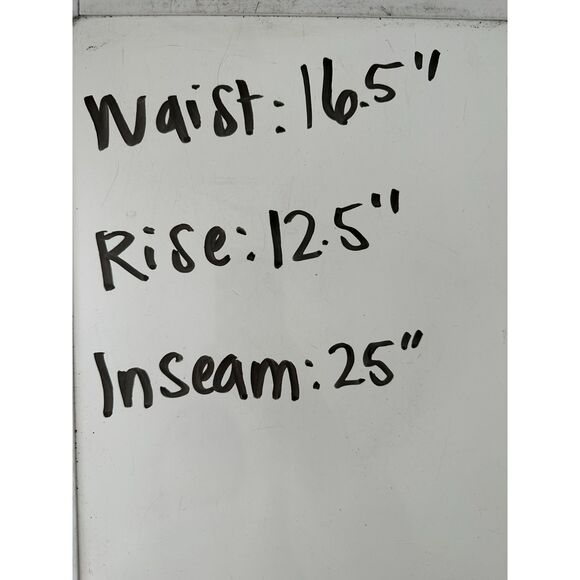 Waist: 16.5"
Rise: 12.5"
Inseam: 25"